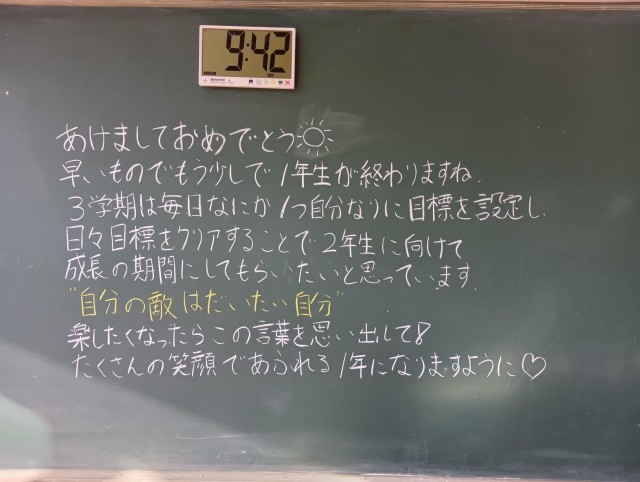 9:42
あけましておめでとう☼
早いものでもう少しで1年生が終わりますね.
3学期は毎日なにか1つ自分なりに目標を設定し.
日々目標をクリアすることで2年生に向けて
成長の期間にしてもらいたいと思っています.
"自分の敵はだいたい自分"
楽したくなったらこの言葉を思い出して!
たくさんの笑顔であふれる1年になりますように♡